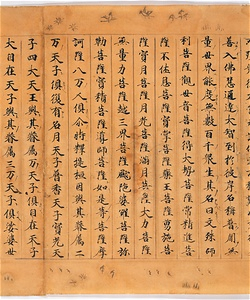 善入佛慧通達大智到於彼岸名稱普聞無
量世界能度無數百千眾生其名曰文殊師
利菩薩觀世音菩薩得大勢菩薩常精進菩
薩不休息菩薩寶掌菩薩藥王菩薩勇施菩
薩寶月菩薩月光菩薩滿月菩薩大力菩薩
無量力菩薩越三界菩薩颰陀婆羅菩薩彌
勒菩薩寶積菩薩導師菩薩如是等菩薩摩
訶薩八萬人俱爾時釋提桓因與其眷屬二
萬天子俱復有名月天子普香天子寶光天
子四大天王與其眷屬萬天子俱自在天子
大自在天子與其眷屬三萬天子俱娑婆世